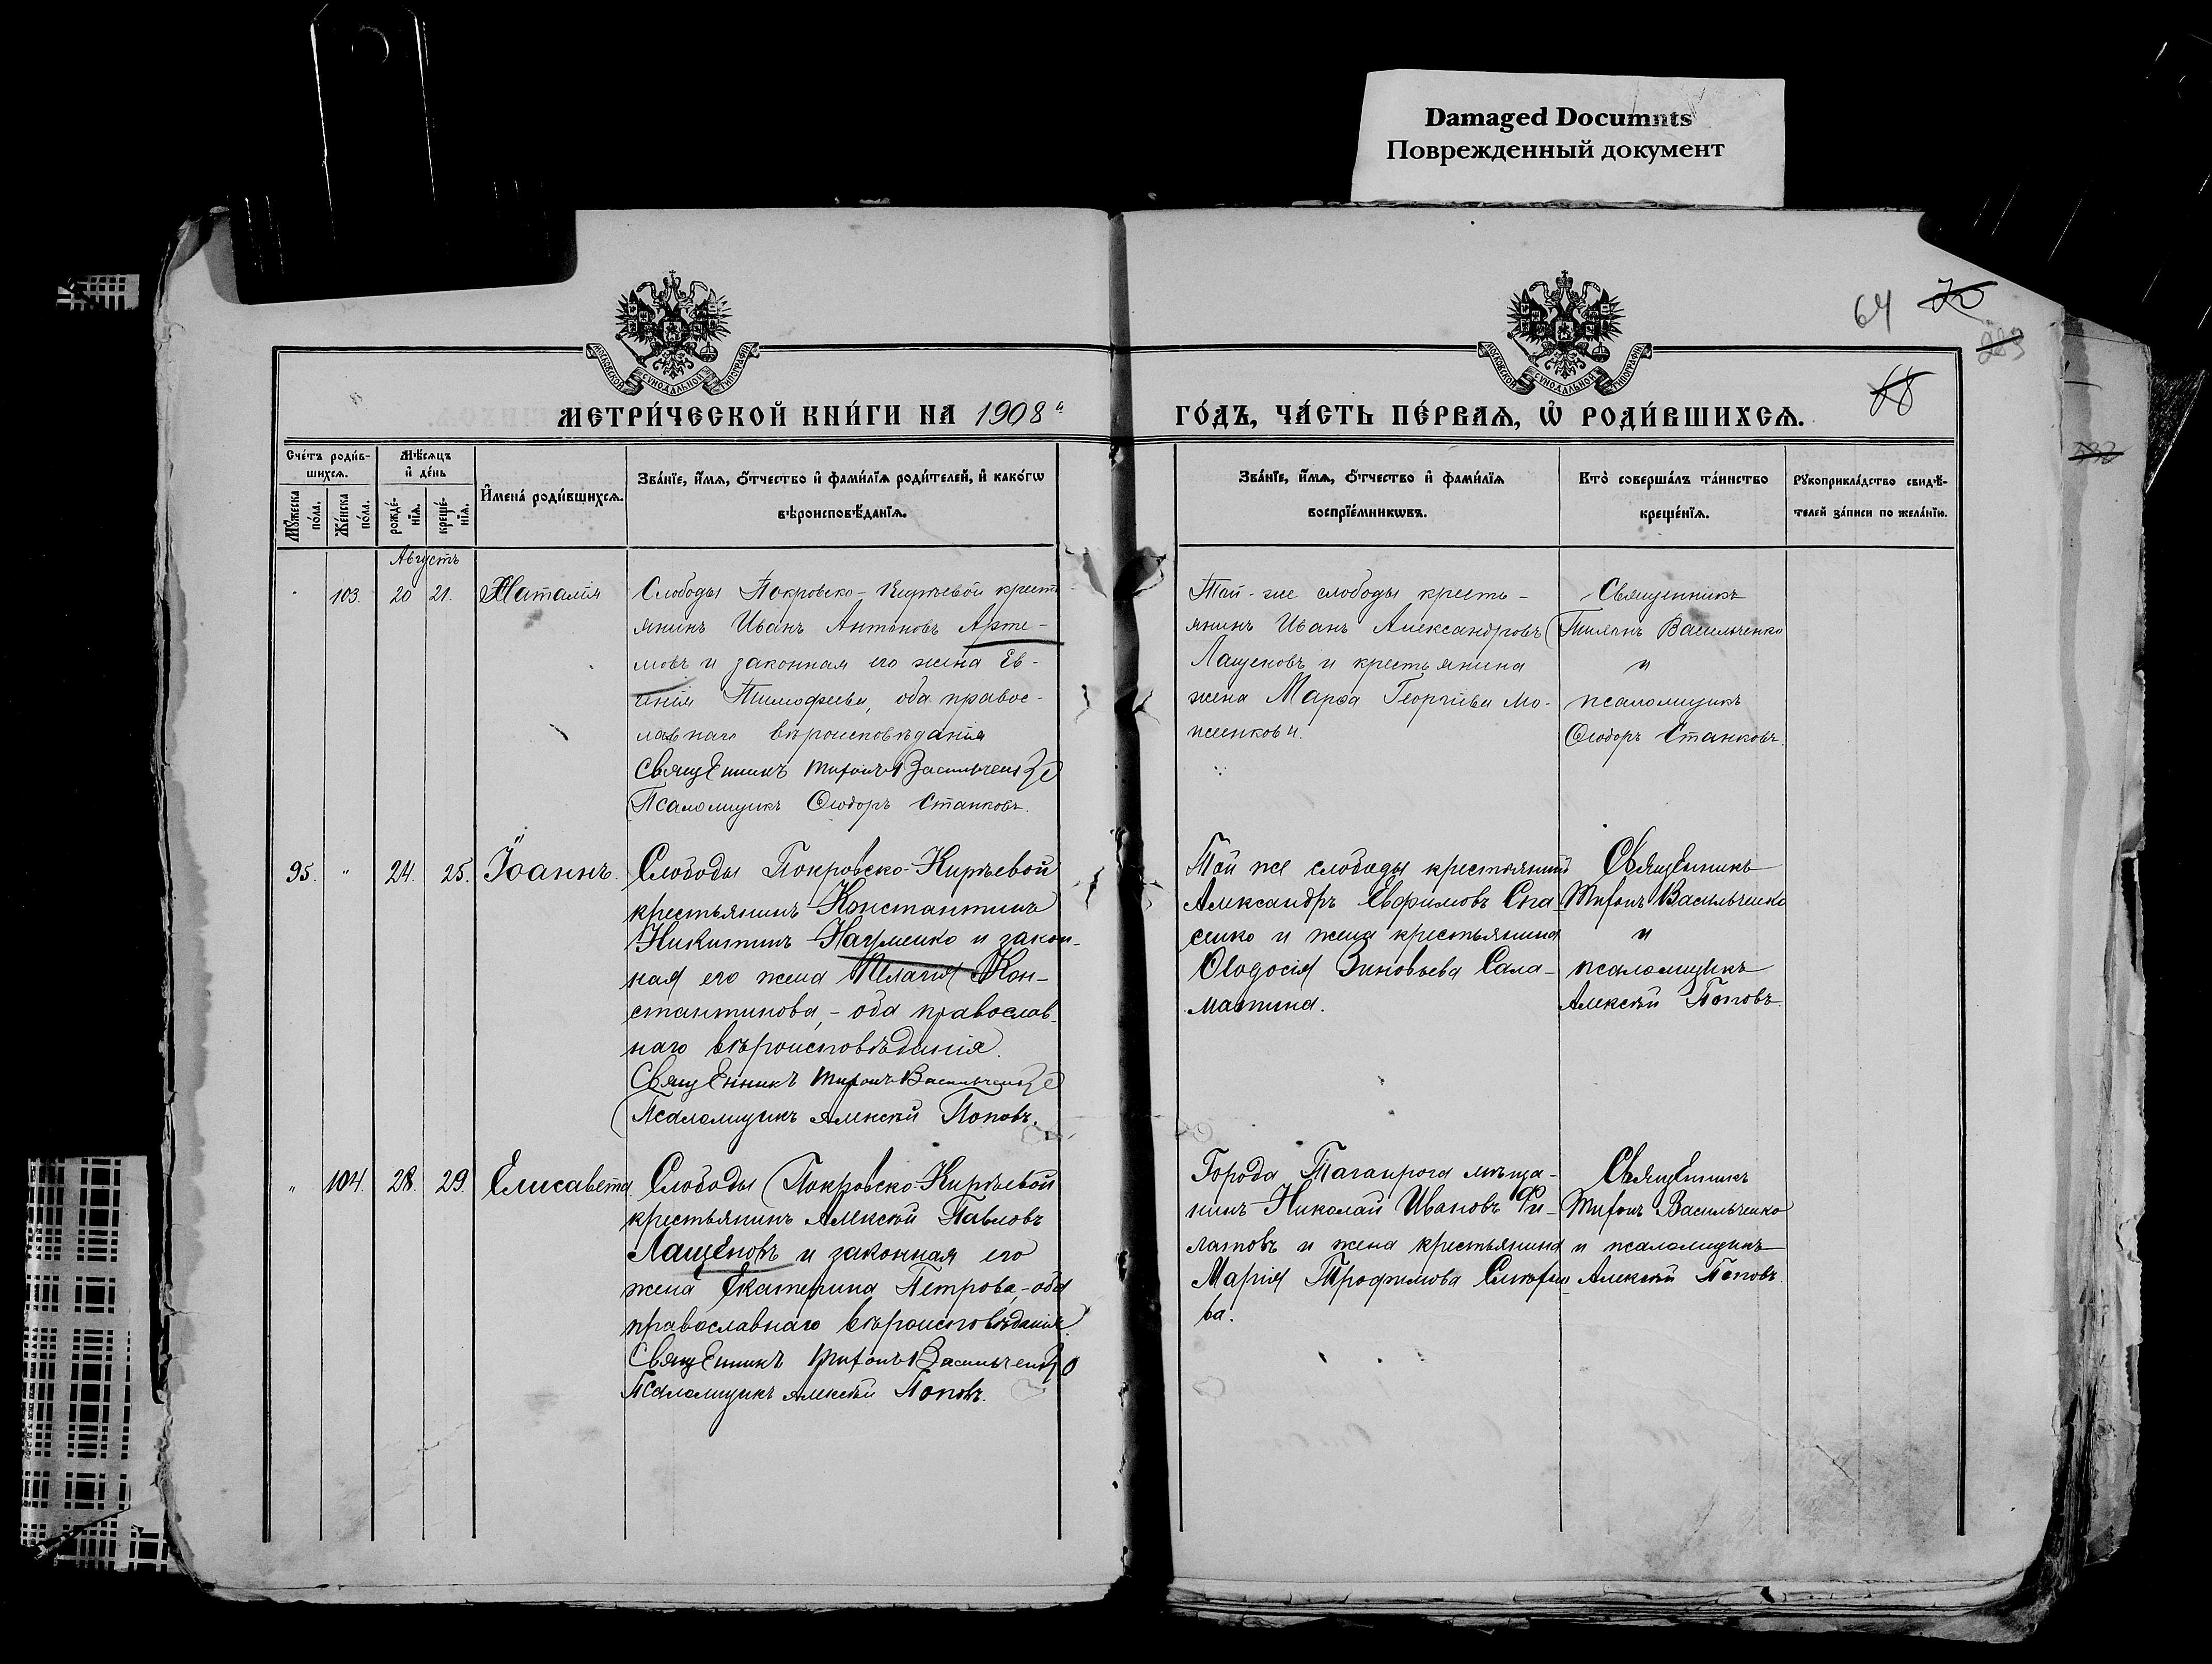 Damaged Documnts
Поврежденный документ
64 70
283
68
МОСКОВСКОЙ СѴНОДАЛЬНОЙ ТИПОГРАФІИ
МОСКОВСКОЙ СѴНОДАЛЬНОЙ ТИПОГРАФІИ
МЕТРИ́ЧЕСКОЙ КНИ́ГИ НА 1908 й
ГО́ДЪ, ЧА́СТЬ ПЕ́РВАѦ, Ѽ РОДИ́ВШИХСѦ.
Сче́тъ роди́в-
шихсѧ.
Мѣ́сѧцъ
и҆ де́нь
Мꙋ́жеска по́ла.
Же́нска по́ла.
рожде́-
нїѧ.
креще́-
нїѧ.
И҆мена̀ роди́вшихсѧ.
Зва́нїе, и҆́мѧ, ѻ҆́тчество и҆ фами́лїѧ роди́телей, и҆ како́гѡ
вѣроисповѣ́данїѧ.
Зва́нїе, и҆́мѧ, ѻ҆́тчество и҆ фами́лїѧ
воспрїе́мникѡвъ.
Кто̀ соверша́лъ та́инство
креще́нїѧ.
Рꙋкоприкла́дство свидѣ́-
телей за́писи по жела́нїю.
Августъ
103. 20 21. Наталія
Слободы Покровско-Кирѣевой кресть
янинъ Иванъ Антоновъ Арте-
мовъ и законная его жена Ев-
генія Тимофеева, оба правос-
лавнаго вѣроисповѣданія
Священникъ Тихонъ Васильченко
Псаломщикъ Ѳеодоръ Станковъ.
Той-же слободы кресть-
янинъ Иванъ Александровъ
Лащеновъ и крестьянина
жена Марѳа Георгіева Мо-
женкова.
Священникъ
Тихонъ Васильченко
и
псаломщикъ
Ѳеодоръ Станковъ.
95. " 24. 25. Іоаннъ.
Слободы Покровско-Кирѣевой
крестьянинъ Константинъ
Никитинъ Науменко и закон-
ная его жена Пелагія Кон-
стантинова, - оба православ-
наго вѣроисповѣданія.
Священникъ Тихонъ Васильченко
Псаломщикъ Алексѣй Поповъ.
Той же слободы крестьянинъ
Александръ Евфимовъ Спа-
сенко и жена крестьянина
Ѳеодосія Зиновьева Сала-
матина.
Священникъ
Тихонъ Васильченко
и
псаломщикъ
Алексѣй Поповъ.
" 104. 28. 29. Елисавета
Слободы Покровско-Кирѣевой
крестьянинъ Алексѣй Павловъ
Лащеновъ и законная его
жена Екатерина Петрова, - оба
православнаго вѣроисповѣданія.
Священникъ Тихонъ Васильченко
Псаломщикъ Алексѣй Поповъ.
Города Таганрога мѣща-
нинъ Николай Ивановъ Фи-
латовъ и жена крестьянина
Марія Трофимова
ва.
Священникъ
Тихонъ Васильченко
и псаломщикъ
Алексѣй Поповъ.